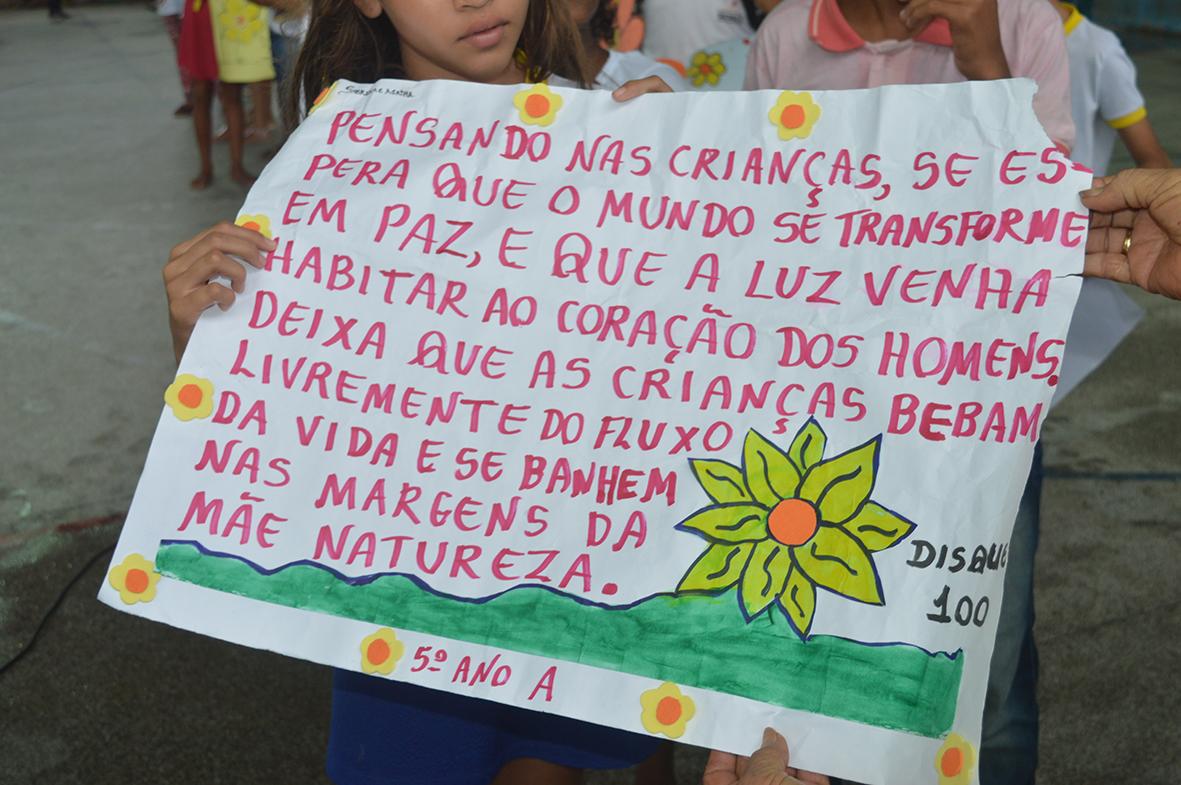 PENSANDO NAS CRIANÇAS, SE ES-
PERA QUE O MUNDO SE TRANSFORME
EM PAZ, E QUE A LUZ VENHA
HABITAR AO CORAÇÃO DOS HOMENS.
DEIXA QUE AS CRIANÇAS BEBAM
LIVREMENTE DO FLUXO
DA VIDA E SE BANHEM
NAS MARGENS DA
MÃE NATUREZA.
DISQUE
100
5º ANO A